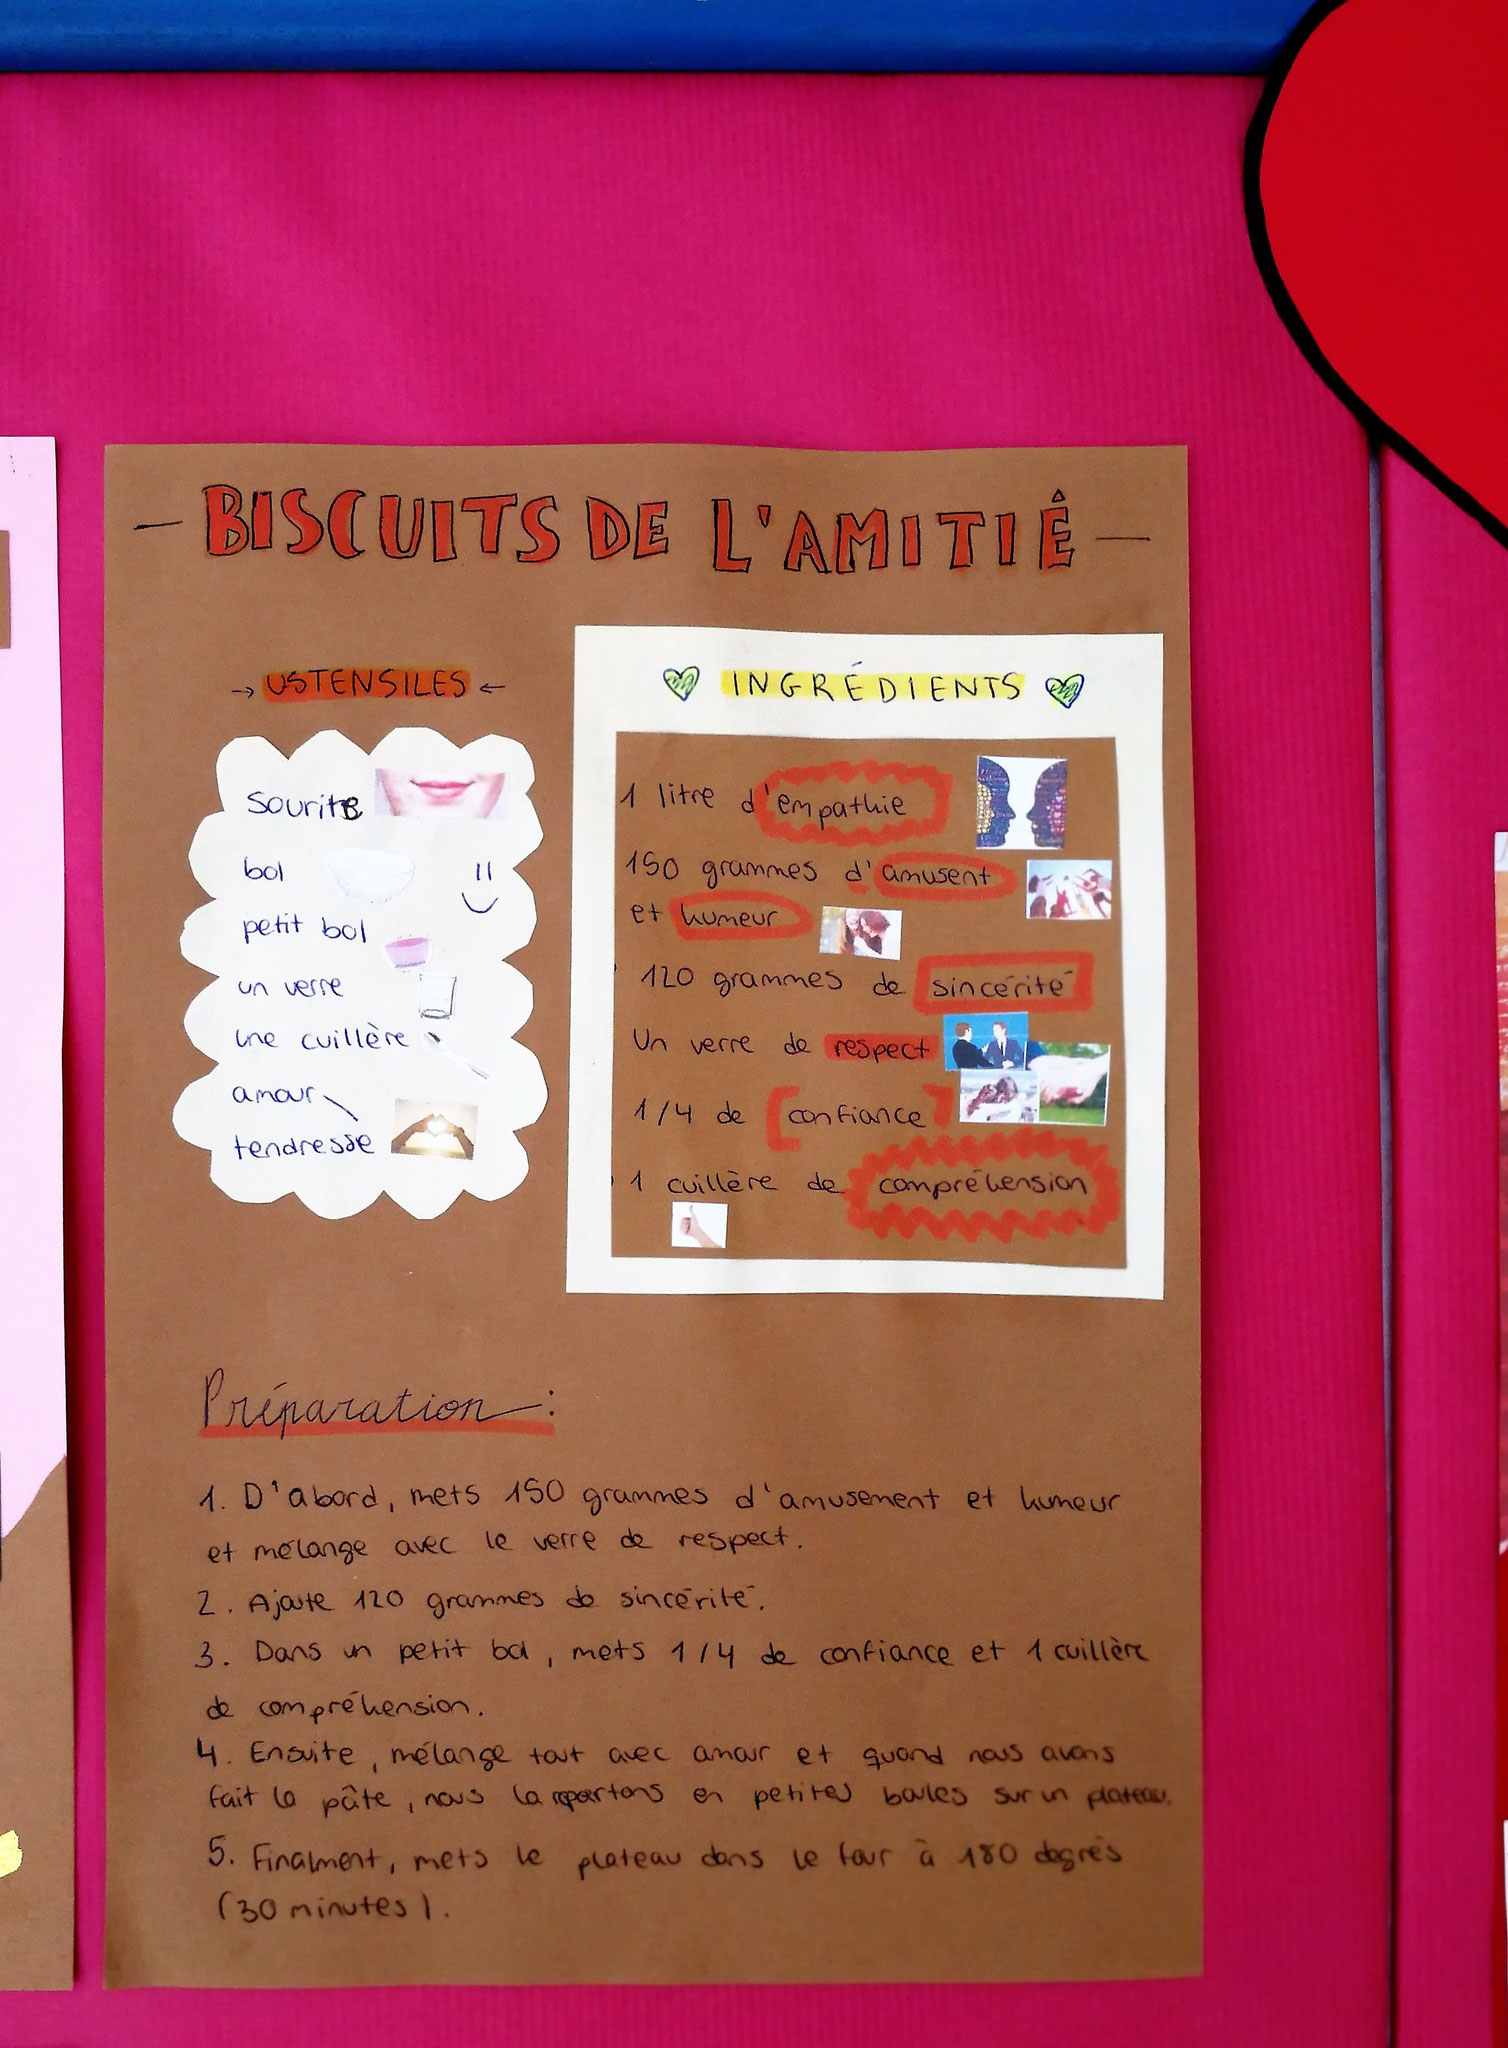 - BISCUITS DE L'AMITIÊ -
→ USTENSILES ←
sourire
bol
petit bol
un verre
une cuillère
amour
tendresse
INGRÉDIENTS
1 litre d'empathie
150 grammes d'amusent
et humeur
120 grammes de sincérité
Un verre de respect
1/4 de [confiance]
1 cuillère de compréhension
Préparation :
1. D'abord, mets 150 grammes d'amusement et humeur
et mélange avec le verre de respect.
2. Ajoute 120 grammes de sincérité.
3. Dans un petit bol, mets 1/4 de confiance et 1 cuillère
de compréhension.
4. Ensuite, mélange tout avec amour et quand nous avons
fait la pâte, nous la en petites boules sur un plateau.
5. Finalment, mets le plateau dans le four à 180 degrés
(30 minutes).